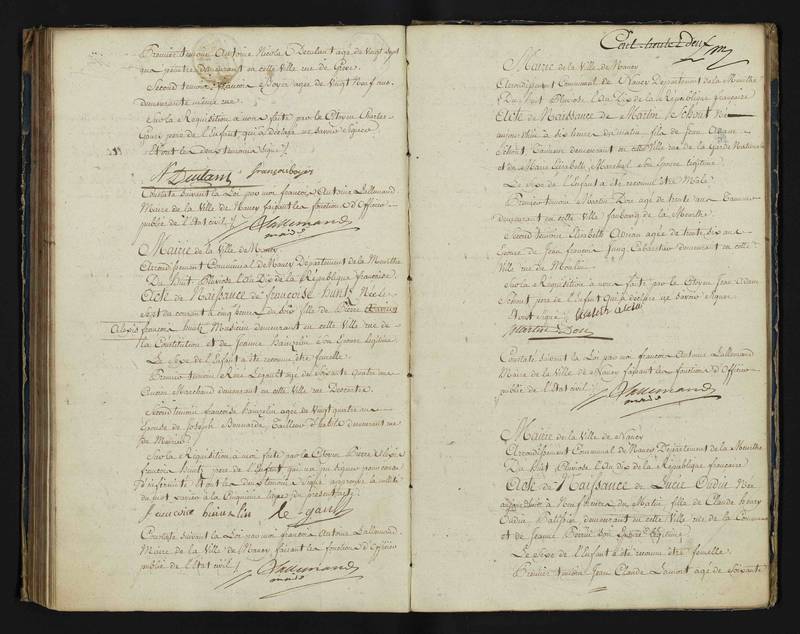 Premier temoin Antoine Nicolas Deculant agé de Vingt Sept
ans peintre demeurant en cette Ville rue de Grève
Second temoin francois Boyer agé de Vingt Neuf ans
demeurant même rue
Sur la Réquisition à nous faite par le Citoyen Charles
pere de l'Enfant qui a déclaré ne savoir Signer
Et ont les deux temoins Signé /.
françois boyer
Constaté suivant la Loi par moi francois Antoine Lallemand
Maire de la Ville de Nancy faisant les fonctions d'Officier
public de l'Etat civil /.
Lallemand
maire
Mairie de la Ville de Nancy
Arrondissement Communal de Nancy Département de la Meurthe
Du huit Pluviose l'an Dix de la République francaise
Acte de Naissance de francoise huntz Née le
Sept du courant à cinq heures du Soir fille de Pierre
Aloÿs francois huntz Musicien demeurant en cette Ville rue de
la Constitution et de Jeanne hainzelin Son Epouse légitime
Le Sexe de l'Enfant a été reconnu être femelle
Premier temoin René Legault agé de Soixante quatre ans
Ancien Marchand demeurant en cette Ville rue Descartes
Second temoin francoise hainzelin agée de Vingt quatre ans
Epouse de Joseph Tailleur d'habits demeurant rue
Du Murier
Sur la Réquisition à nous faite par le Citoyen Pierre Aloÿs
francois huntz pere de l'Enfant qui n'a pu Signer pour cause
d'infirmité et ont les deux temoins Signé approuvé la nullité
du mot rayé à la Cinquieme ligne du present acte /.
francoise hainzelin le-gault
Constaté Suivant la Loi par moi francois Antoine Lallemand
Maire de la Ville de Nancy faisant les fonctions d'Officier
public de l'Etat civil /.
Lallemand
maire
Cent trente deux
Mairie de la Ville de Nancy
Arrondissement Communal de Nancy Département de la Meurthe
Du huit Pluviose l'an Dix de la République francaise
Acte de Naissance de Martin Schout Né
aujourdhui à Six heures du matin fils de Jean Adam
Schout Tanneur demeurant en cette Ville rue de la Garde Nationale
et de Marie Elisabeth Marechal Son Epouse légitime
Le Sexe de l'Enfant a été reconnu être Mâle
Premier temoin Martin agé de trente ans Tanneur
demeurant en cette Ville faubourg de la Meurthe
Second temoin Elisabeth Adrian agée de trente Six ans
Epouse de Jean francois Jung Cabaretier demeurant en cette
Ville rue du Moulin
Sur la Réquisition à nous faite par le Citoyen Jean Adam
Schout pere de l'Enfant qui a déclaré ne savoir Signer
Et ont Signé /.
Martin
Constaté suivant la Loi par moi francois Antoine Lallemand
Maire de la Ville de Nancy faisant les fonctions d'Officier
public de l'Etat civil /.
Lallemand
maire
Mairie de la Ville de Nancy
Arrondissement Communal de Nancy Département de la Meurthe
Du huit Pluviose l'an Dix de la République francaise
Acte de Naissance de Lucie Oudin Née
aujourdhui à Neuf heures du Matin fille de Claude henry
Oudin Patissier demeurant en cette Ville rue de la Commune
et de Jeanne Son Epouse légitime
Le Sexe de l'Enfant a été reconnu être femelle
Premier temoin Jean Claude agé de Soixante